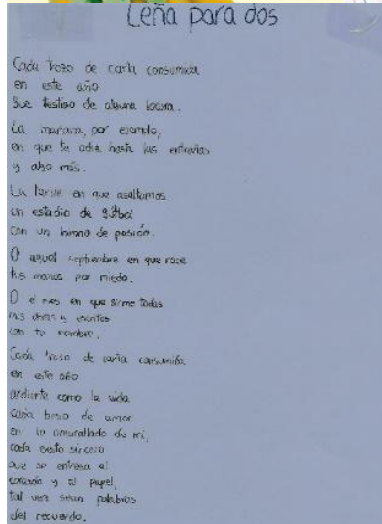 Leña para dos
Cada trozo de carta consumida
en este año
fue testigo de alguna locura.
La mañana, por ejemplo,
en que te odié hasta las entrañas
y algo más.
La tarde en que asaltamos
un estadio de fútbol
con un himno de pasión.
O aquel septiembre en que rocé
tus manos por miedo.
O el mes en que firmé todos
mis escritos
con tu nombre.
Cada trozo de carta consumida
en este año
ardiente como la vida
cada beso de amor
en lo amurallado de mi,
cada gesto sincero
que se entrega al
corazón y al papel,
tal vez sean palabras
del recuerdo.